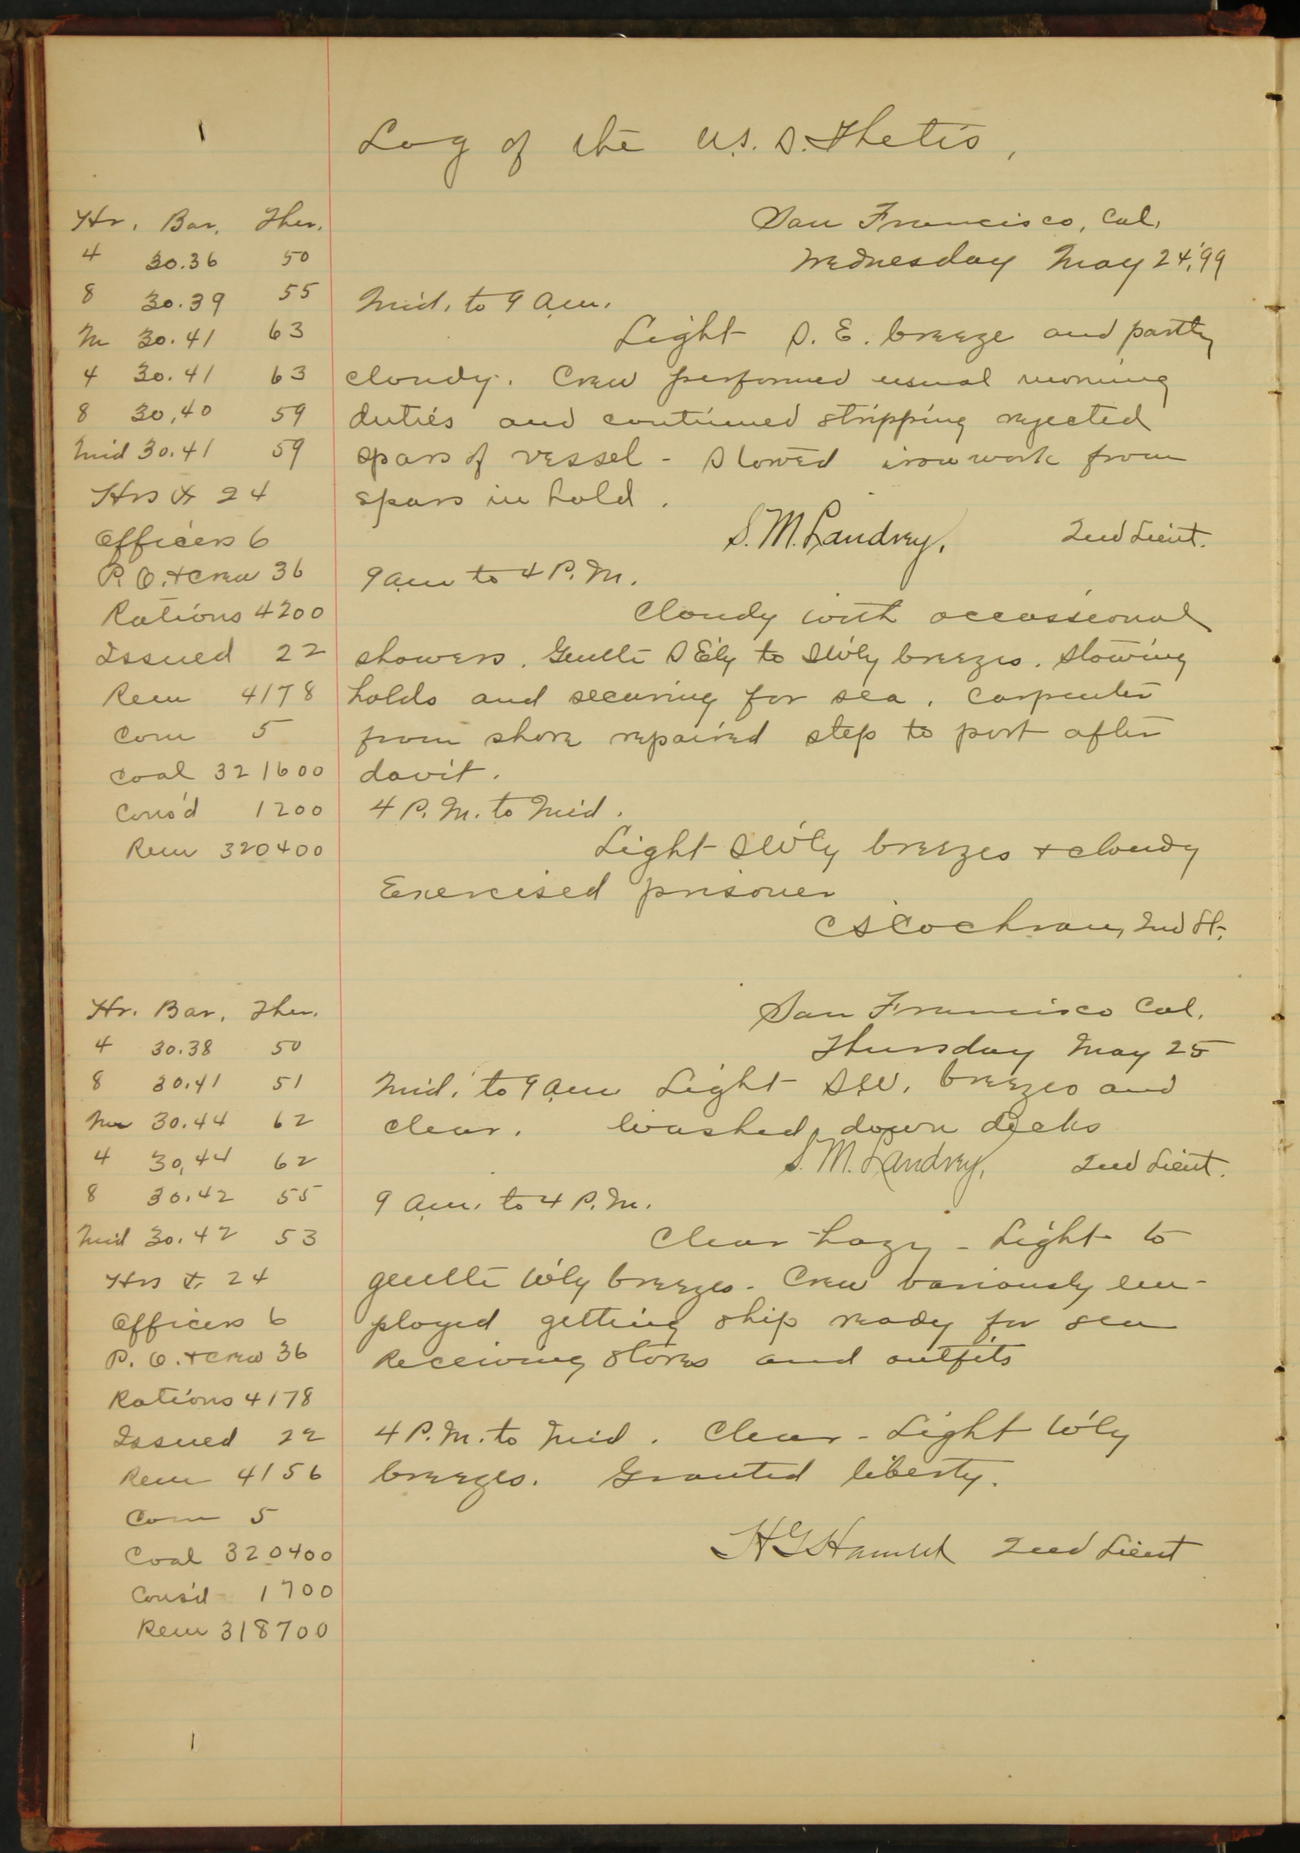 1
Log of the U.S.S. Thetis,
Hr. Bar. Ther.
4 30.36 50
8 30.39 55
M 30.41 63
4 30.41 63
8 30.40 59
Mid 30.41 59
Hrs & 24
Officers 6
P. O. + Crew 36
Rations 4200
Issued 22
Rem 4178
Com 5
Coal 321600
Cons'd 1200
Rem 320400
San Francisco, Cal.
Wednesday May 24,'99
Mid. to 9 a.m.
Light S. E. breeze and partly
cloudy. Crew performed usual morning
duties and continued stripping rejected
spars of vessel - Stowed iron work from
spars in hold.
S. M. Landrey, 2nd Lieut.
9 am to 4 P.M.
Cloudy with occassional
showers. Gentle SE'ly to SW'ly breezes. Stowing
holds and securing for sea. Carpenter
from shore repaired step to port after
davit.
4 P.M. to Mid.
Light SW'ly breezes + cloudy
Exercised prisoner
C S Cochran, 2nd Lt.
Hr. Bar. Ther.
4 30.38 50
8 30.41 51
M 30.44 62
4 30.44 62
8 30.42 55
Mid 30.42 53
Hrs & 24
Officers 6
P. O. + Crew 36
Rations 4178
Issued 22
Rem 4156
Com 5
Coal 320400
Cons'd 1700
Rem 318700
San Francisco Cal.
Thursday May 25
Mid. to 9 am Light SW. breezes and
clear. Washed down decks
S. M. Landrey, 2nd Lieut.
9 a.m. to 4 P.M.
Clear hazy - Light to
gentle W'ly breezes - Crew variously em-
ployed getting ship ready for sea
Receiving stores and outfits
4 P.M. to Mid. Clear - Light W'ly
breezes. Granted liberty.
H G Hamlet 2nd Lieut
1